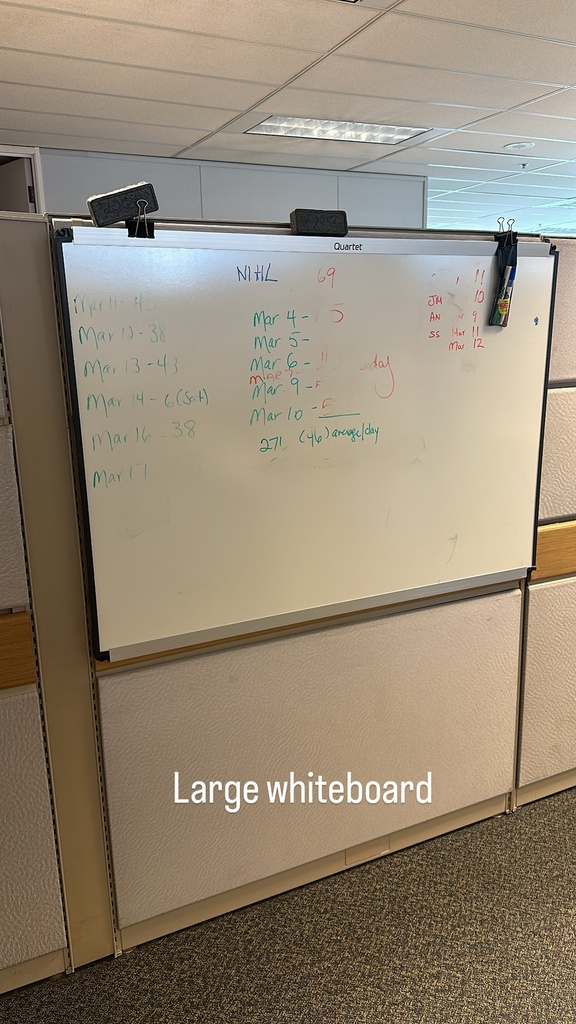 Quartet
NIHL 69
Mar 11 - 4
Mar 12 - 38
Mar 13 - 43
Mar 14 - 6 (Sat)
Mar 16 - 38
Mar 17
Mar 4 - 5
Mar 5 -
Mar 6 - 11
Mar 9 -
Mar 10 -
271 (46) average/day
11
JM 10
AN 9
SS Mar 11
Mar 12
Large whiteboard